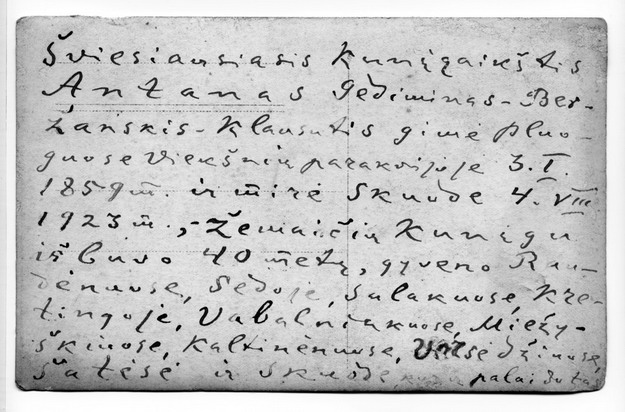 Šviesiausiasis Kunigaikštis
Antanas Gediminas-Ber-
žanskis-Klausutis gimė Pluo-
guose Viekšnių parakvijoje 3.I.
1859 m. ir mirė Skuode 4.VIII
1923 m., - Žemaičių Kunigu
iš buvo 40 metų, gyveno Rau-
dėnuose, Sėdoje, Salakuose, Kre-
tingoje, Vabalninkuose, Miežy-
škiuose, Kaltinėnuose,
Šatėse ir Skuode, palaidotas